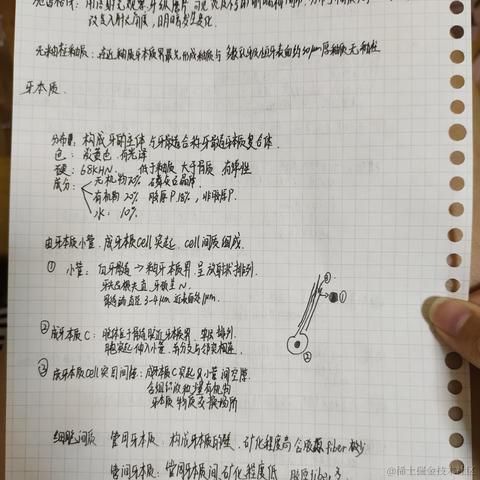 改变入射光角度，明暗发生变化.
无釉柱釉质：近釉牙本质界最先形成釉质与多数乳牙和恒牙表面约30μm厚釉质无釉柱
牙本质.
分布：构成牙的主体 与牙髓合称牙髓牙本质复合体.
色：淡黄色 有光泽
硬：68KHN. 低于釉质 大于骨质 有弹性
成分： 无机物70% 磷灰石晶体
有机物20% 胶原P 18%，非胶原P.
水：10%
由牙本质小管，成牙本质cell突起，cell间质 组成
① 小管：自牙髓→釉牙本质界，呈放射状排列.
牙尖及根尖直，牙颈呈~.
近髓端直径3-4μm 近表面处1μm.
②成牙本质C：胞体位于髓近牙本质界，单层排列.
③成牙本质cell突周间隙：成牙本质C突起&小管间空隙.
含组织液和少量有机物
牙本质物质交换场所
③
①
②
细胞间质 管周牙本质：构成牙本质小管壁，矿化程度高 含胶原fiber极少
管间牙本质：管周牙本质间，矿化程度低 胶原fiber多
@稀土掘金技术社区